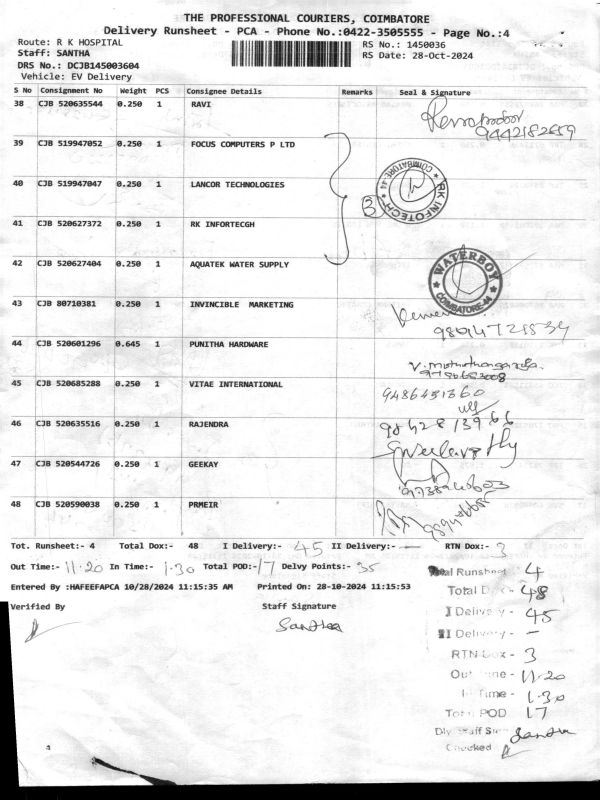 THE PROFESSIONAL COURIERS, COIMBATORE
Delivery Runsheet - PCA - Phone No.:0422-3505555 - Page No.:4
Route: R K HOSPITAL
Staff: SANTHA
DRS No.: DCJB145003604
Vehicle: EV Delivery
RS No.: 1450036
RS Date: 28-Oct-2024
S No Consignment No Weight PCS Consignee Details Remarks Seal & Signature
38 CJB 520635544 0.250 1 RAVI
9442182659
39 CJB 519947052 0.250 1 FOCUS COMPUTERS P LTD
40 CJB 519947047 0.250 1 LANCOR TECHNOLOGIES
3
RK INFOTECH
COIMBATORE-44
41 CJB 520627372 0.250 1 RK INFORTECGH
42 CJB 520627404 0.250 1 AQUATEK WATER SUPPLY
WATERBOY
COIMBATORE-44
43 CJB 80710381 0.250 1 INVINCIBLE MARKETING
44 CJB 520601296 0.645 1 PUNITHA HARDWARE
45 CJB 520685288 0.250 1 VITAE INTERNATIONAL
9486451360
46 CJB 520635516 0.250 1 RAJENDRA
47 CJB 520544726 0.250 1 GEEKAY
48 CJB 520590038 0.250 1 PRMEIR
Tot. Runsheet:- 4 Total Dox:- 48 I Delivery:- 45 II Delivery:- — RTN Dox:- 3
Out Time:- 11.20 In Time:- 1.30 Total POD:- 17 Delvy Points:- 35
Entered By :HAFEEFAPCA 10/28/2024 11:15:35 AM Printed On: 28-10-2024 11:15:53
Verified By Staff Signature
Santha
Total Runsheet 4
Total Dox - 48
I Delivery - 45
II Delivery - —
RTN Dox - 3
Out Time - 11.20
In Time - 1.30
Total POD 17
Dly Staff Sign Santha
Checked